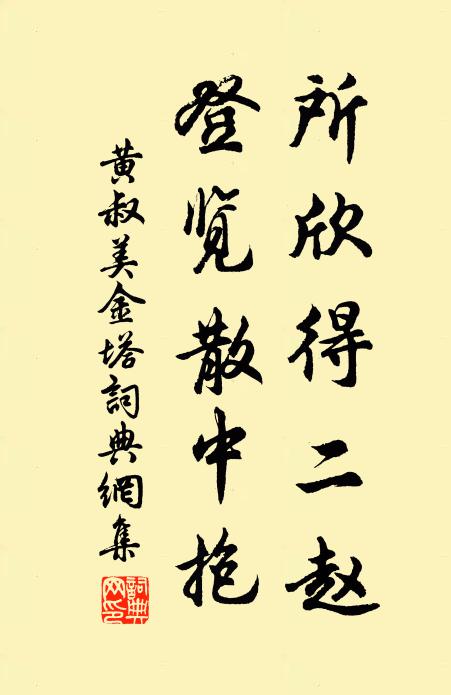 所欣得二赵
登览散中抱
黄叔美金塔詞典網集
詞典网印